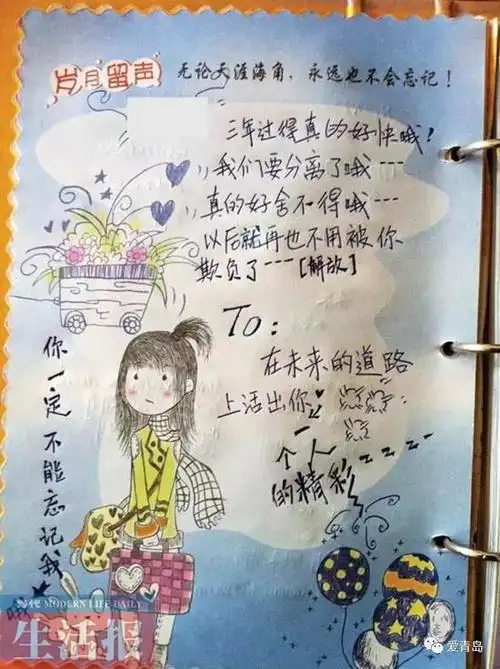 岁月留声
无论天涯海角，永远也不会忘记！
三年过得真的好快哦！
我们要分离了哦----
真的好舍不得哦---
以后就再也不用被你
欺负了----[解放]
To：
在未来的道路
上活出你
个人
的精彩
你一定不能忘记我
MODERN LIFE DAILY
生活报
爱青岛